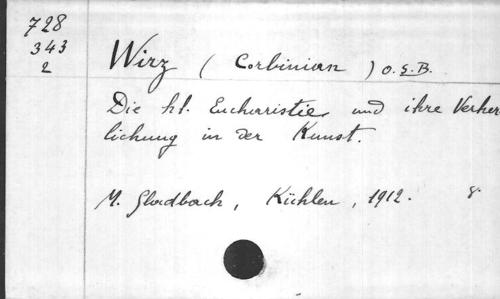 728
343
2
Wirz (Corbinian) O.S.B.
Die hl. Eucharistie und ihre Verher
lichung in der Kunst.
M. Gladbach, Kühlen, 1912. 8.